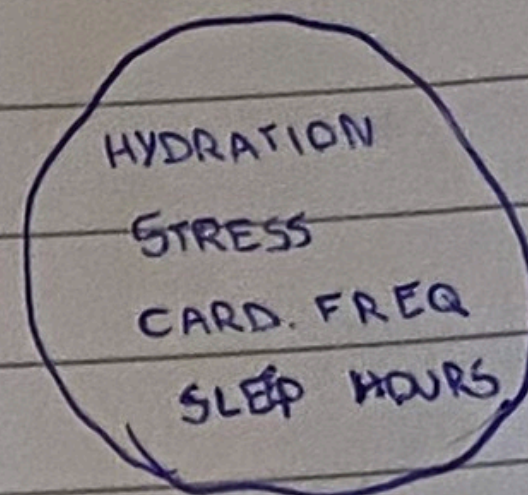 HYDRATION
STRESS
CARD. FREQ
SLEEP HOURS